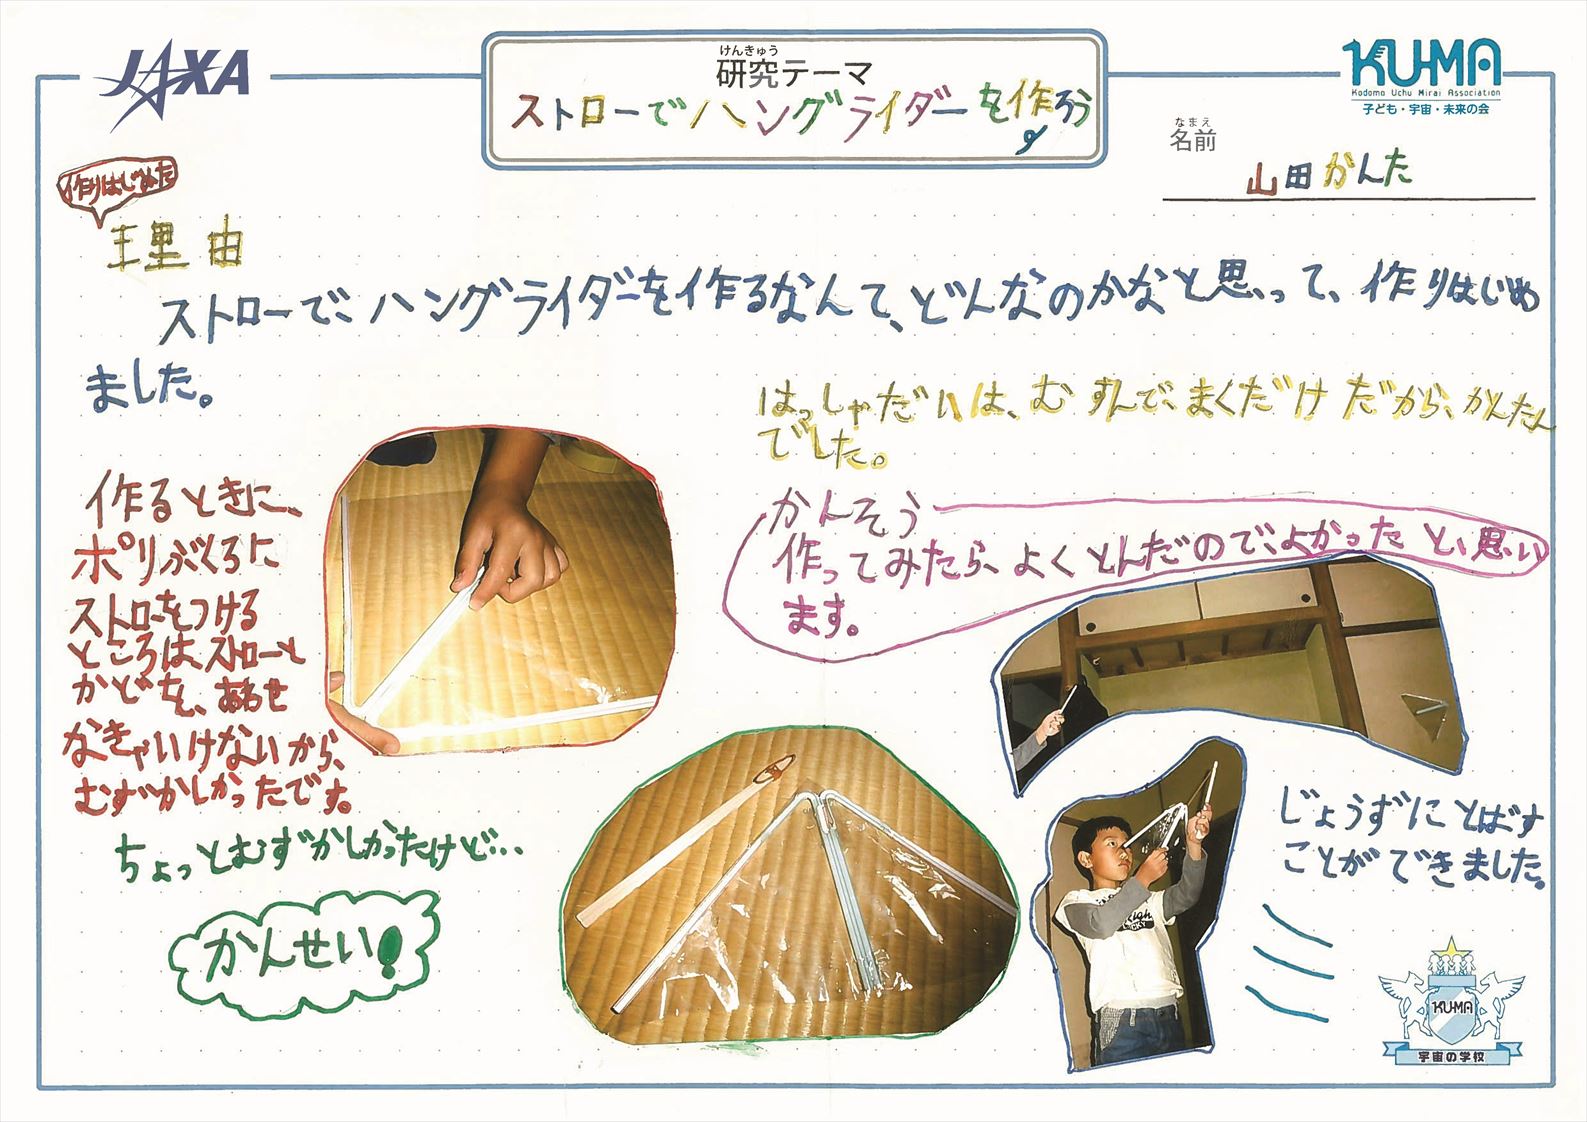 JAXA
けんきゅう
研究テーマ
ストローでハングライダーを作ろう
KU-MA
Kodomo Uchu Mirai Association
子ども・宇宙・未来の会
なまえ
名前
山田かんた
作りはじめた
理由
ストローで、ハングライダーを作るなんて、どんなのかなと思って、作りはじめ
ました。
はっしゃだいは、むすんで、まくだけだから、かんたん
でした。
作るときに、
ポリぶくろに
ストローをつける
ところは、ストローと
かどを、あわせ
なきゃいけないから、
むずかしかったです。
かんそう
作ってみたら、よくとんだので、よかったと、思い
ます。
ちょっとむずかしかったけど...
かんせい!
じょうずにとばす
ことができました。
KU-MA
宇宙の学校